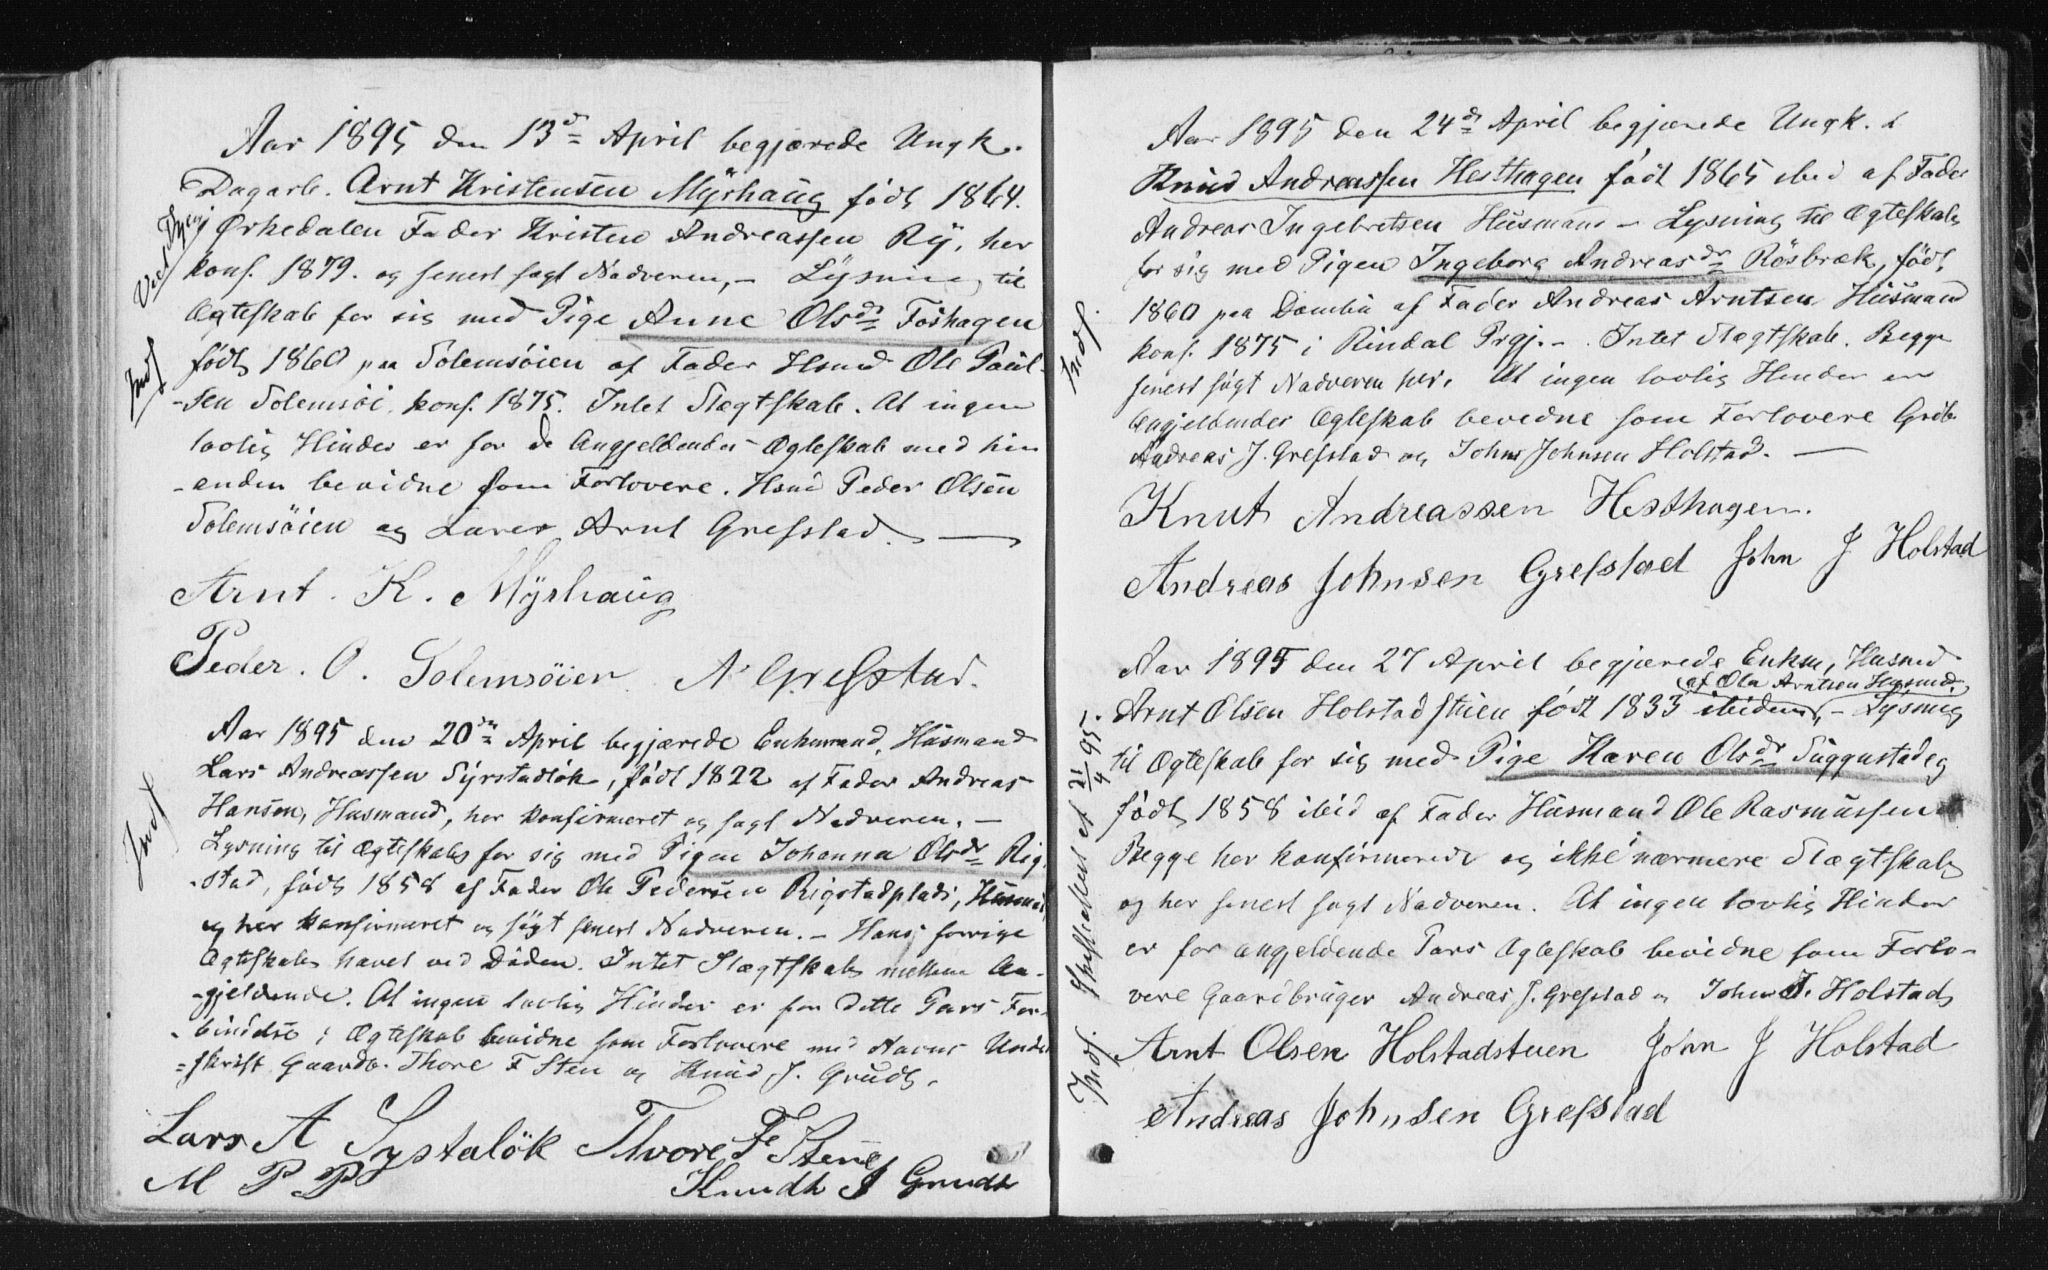 Aar 1895 den 13de April begjærede Ungk.
Dagarb. Arnt Kristensen Myrhaug født 1864.
i Ørkedalen Fader Kristen Andreassen Ry, her
konf. 1879. og senest søgt Nadveren, – Lysning til
Ægteskab for sig med Pige Anne Olsdr Foshagen
født 1860 paa Solemsøien af Fader Hsmd Ole Paul-
-sen Solemsøi, konf. 1875. Intet Slægtskab. At ingen
lovlig Hinder er for de Angjeldendes Ægteskab med hin
-anden bevidne som Forlovere. Hsmd Peder Olsen
Solemsøien og Lærer Arnt Grefstad. —
Indf.
Arnt. K. Myrhaug
Peder. O. Solemsøien. A Grefstad.
Aar 1895 den 20de April begjærede Enkemand, Husmand
Lars Andreassen Syrstadløk, født 1822 af Fader Andreas
Hansen, Husmand, her konfirmeret og søgt Nadveren. –
Lysning til Ægteskab for sig med Pigen Johanna Olsdr Rig-
-stad, født 1858 af Fader Ole Pedersen Rigstadplads, Husmd
og her konfirmeret og søgt senest Nadveren. – Hans forrige
Ægteskab hævet ved Døden. Intet Slægtskab mellem An-
-gjeldende. At ingen lovlig Hinder er for dette Pars For-
-bindelse i Ægteskab bevidne som Forlovere med Navns Under
-skrift Gaardb. Thore F Sten og Knud J. Grudt.
Indf
Lars A Systaløk Thore F Stene
M P P Knudt J Grudt
Aar 1895 den 24de April begjærede Ungk.
Knud Andreassen Hesthagen født 1865 ibid af Fader
Andreas Ingebretsen Husmand – Lysning til Ægteskab
for sig med Pigen Ingeborg Andreasdr Røsbræk, født
1860 paa af Fader Andreas Arntsen Husmand
konf. 1875 i Rindal Prgj. –. Intet Slægtskab. Begge
senest søgt Nadveren her. At ingen lovlig Hinder er
Angjeldendes Ægteskab bevidne som Forlovere Grdb.
Andreas J. Grefstad og John Johnsen Holstad. —
Indf.
Knut Andreassen Hesthagen.
Andreas Johnsen Grefstad John J Holstad
Aar 1895 den 27 April begjærede Enkm, Husmd
af Ola Arntsen Husmd.
Arnt Olsen Holstadstuen født 1833 ibidem, – Lysning
til Ægteskab for sig med Pige Karen Olsdr Suggustadeg
født 1858 ibid af Fader Husmand Ole Rasmussen
Begge her konfirmerede og ikke nærmere Slægtskab
og her senest søgt Nadveren. At ingen lovlig Hinder
er for angjeldende Pars Ægteskab bevidne som Forlo-
vere Gaardbruger Andreas J. Grefstad og John J. Holstad
Indf. Skifteattest af 21/4 95.
Arnt Olsen Holstadstuen John J Holstad
Andreas Johnsen Grefstad